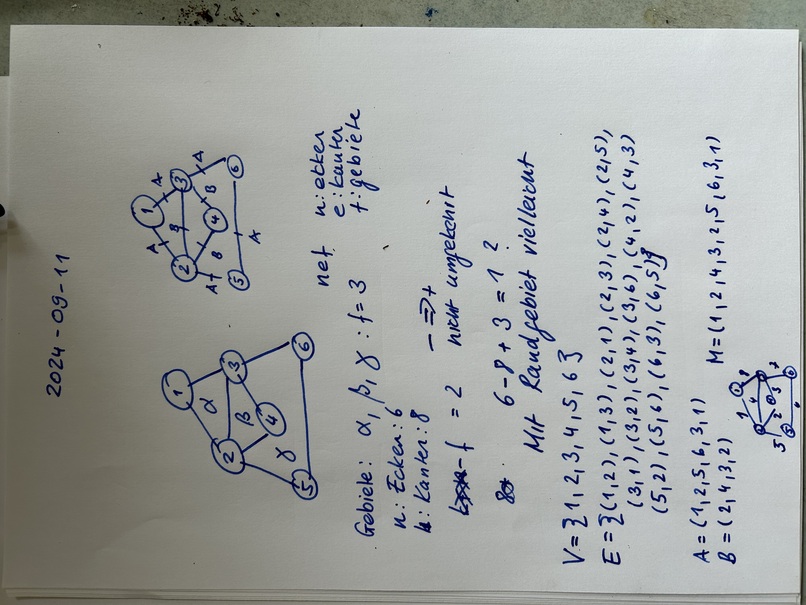 2024-09-11
1
2
3
4
5
6
α
β
γ
1
2
3
4
5
6
A
A
A
A
A
B
B
B
Gebiete: α, β, γ : f = 3
net
n: Ecken: 6
n: ecken
k: Kanten: 8
e: kanten
f: gebiete
- f = 2
nicht umgekehrt
6-8+3 = 1 ?
Mit Randgebiet vielleicht
V = {1, 2, 3, 4, 5, 6}
E = {(1,2), (1,3), (2,1), (2,3), (2,4), (2,5),
(3,1), (3,2), (3,4), (3,6), (4,2), (4,3)
(5,2), (5,6), (6,3), (6,5)}
A = (1,2,5,6,3,1)
B = (2,4,3,2)
M = (1,2,4,3,2,5,6,3,1)